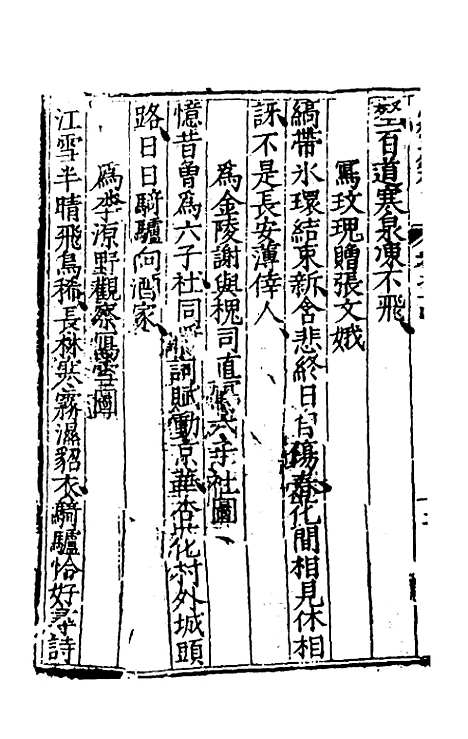 百道寒泉凍不飛
寫玫瑰贈張文娥
縞帶氷環結束新含悲終日自傷春化間相見休相
訝不是長安薄倖人
爲金陵謝與槐司直寫六子社圖
憶昔曾爲六子社同詞賦動京華杏花村外城頭
路日日騎驢向酒家
爲李源野觀察寫雪圖
江雪半晴飛鳥稀長林寒霧濕貂衣騎驢恰好尋詩